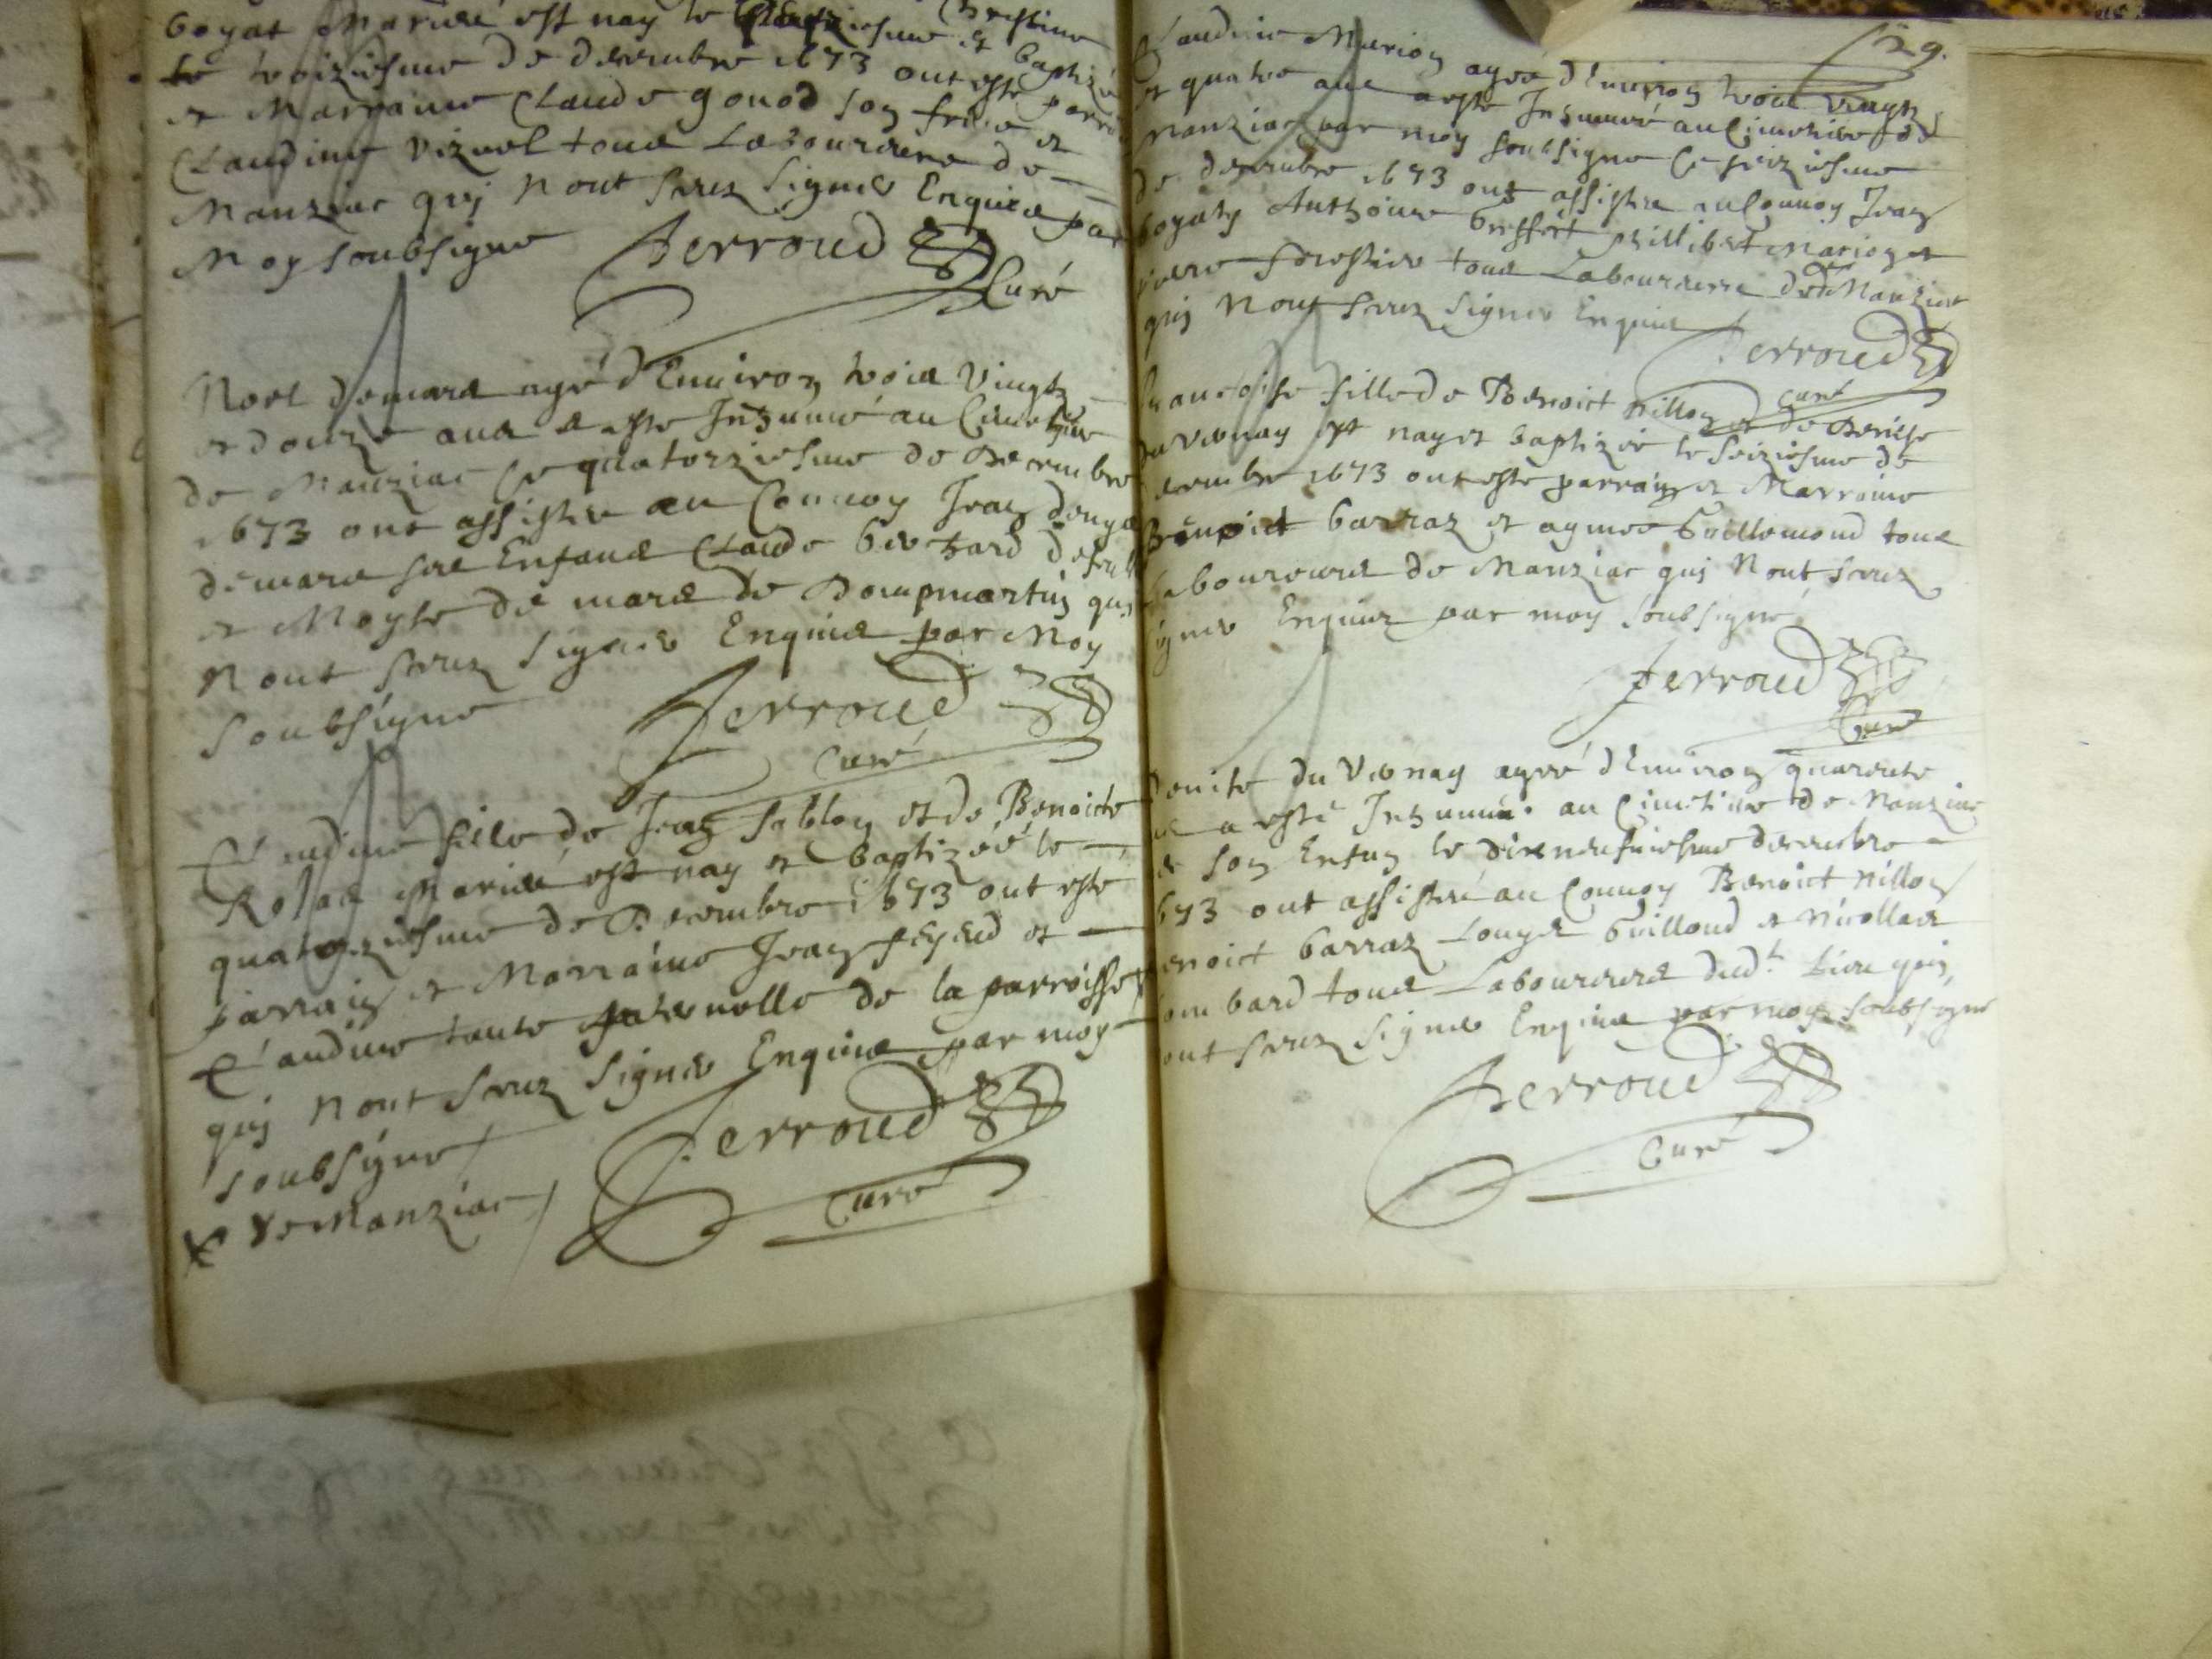 boyat Mariés est nay le et
le troiziesme de decembre 1673 ont esté
et Marraine Claude gonod son frere et
Claudine vizuel tous Laboureurs de
Manziac quj Nont sceuz signer Enquis par
Moy soubsigne Ferroud
Curé
Noel demare agé d'Environ trois Vingtz
et douze ans a esté Inhumé au Cimetiere
de Manziac ce quatorziesme de Decembre
1673 ont assistes au Connoy Jean
demare ses Enfans Claude
et Moyse de mare de Dompmartin quj
Nont sceuz signer Enquis par Moy
soubsigne Ferroud
Curé
Claudine fille de Jean sablon et de Benoicte
Rolas Mariés est nay et baptizéé le
quatorziesme de Decembre 1673 ont esté
parrain et Marraine Jean feyeud et
Claudine tante paternelle de la parroisse
quj Nont sceuz signer Enquis par moy
soubsigne Ferroud
de Manziac Curé
29.
Claudine Marion agee d'Environ trois vingtz
et quatre ans a esté Inhumé au Cimetiere de
Manziac par moy soubsigne ce seiziesme
de decembre 1673 ont assistes au Connoy Jean
boyat Anthoine bressert phillibert Marion et
pierre forestier tous Laboureurs dudt Manziac
quj Nont sceuz signer Enquis
Ferroud
Curé
francoise fille de Benoict Nillon et de Denise
du Vernay est nay et baptizéé le seiziesme de
decembre 1673 ont esté parrain et Marraine
Benoict barraz et aymee Guillemond tous
Laboureurs de Manziac quj Nont sceuz
signer Enquis par moy soubsigné
Ferroud
Curé
Denise du Vernay agéé d'Environ quarente
ans a esté Inhumée au Cimetiere de Manziac
& son Enfan le dixneufuiesme decembre
1673 ont assistes au Connoy Benoict Nillon
Benoict barraz Louys Guilloud et Nicollas
bombard tous Laboureurs dudt Lieu quj
Nont sceuz signer Enquis par moy soubsigne
Ferroud
Curé